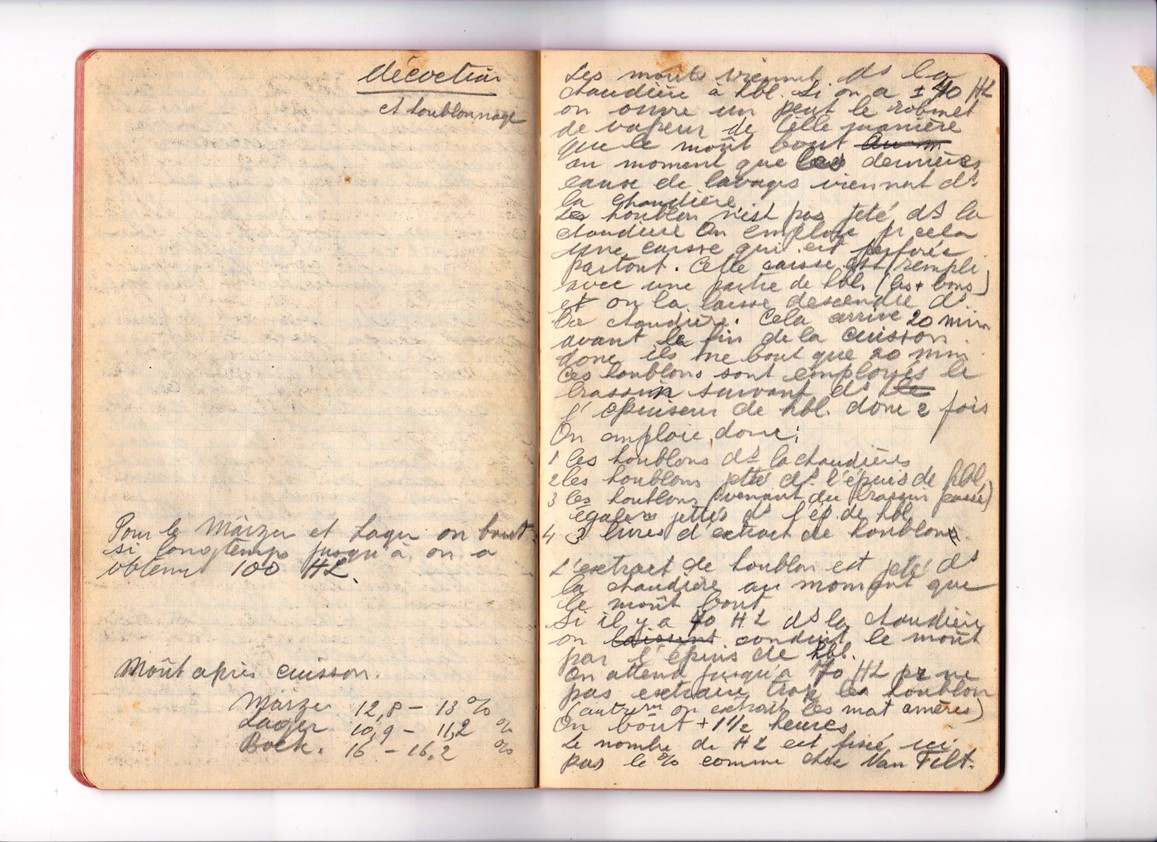 décoction
et houblonnage
Pour le Märzen et Lager on bout
si longtemps jusqu'à on a
obtenu 100 HL.
Moût après cuisson.
Märze 12,8 – 13 %
Lager 10,9 – 11,2 %
Bock. 16 – 16,2 %
Les moûts viennent ds la
chaudière à hbl. Si on a ± 40 HL
on ouvre un peut le robinet
de vapeur de telle manière
que le moût bout
au moment que les dernières
eaux de lavages viennent ds
la chaudière.
Le houblon n'est pas jeté ds la
chaudière On emploie pr cela
une caisse qui est perforée
partout. Cette caisse est rempli
avec une partie de hbl. (as + bons)
et on la laisse descendre ds
la chaudière. Cela arrive 20 min
avant la fin de la cuisson.
donc ils ne bout que 20 min.
Ces houblons sont employés le
brassin suivant ds
l'épuiseur de hbl. donc 2 fois
On emploie donc:
1 les houblons ds la chaudières
2 les houblons jeté ds l'épuis de hbl
3 les houblons (venant du brassin passé)
également jettés ds l'ép. de hbl
4 3 livres d'extrait de houblons
L'extrait de houblon est jeté ds
la chaudière au moment que
le moût bout
Si il y a 70 HL ds la chaudière
on laissent conduit le moût
par l'épuis de hbl.
On attend jusqu'à 70 HL pr ne
pas extraire trop les houblon
(autrem on extrait les mat amères)
On bout ± 1 1/2 heures
Le nombre de HL est fixé ici
pas le % comme chez Van Tilt.